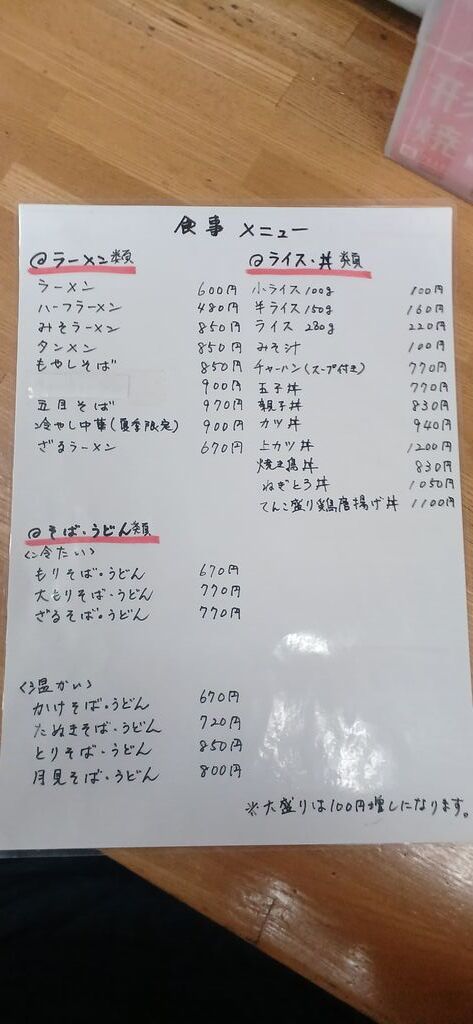 食事 メニュー
@ラーメン類
ラーメン 600円
ハーフラーメン 480円
みそラーメン 850円
タンメン 850円
もやしそば 850円
900円
五目そば 970円
冷やし中華(夏季限定) 900円
ざるラーメン 670円
@そば・うどん類
<冷たい>
もりそば・うどん 670円
大もりそば・うどん 770円
ざるそば・うどん 770円
<温かい>
かけそば・うどん 670円
たぬきそば・うどん 720円
とりそば・うどん 850円
月見そば・うどん 800円
@ライス・丼類
小ライス 100g 100円
半ライス 150g 160円
ライス 230g 220円
みそ汁 100円
チャーハン(スープ付き) 770円
玉子丼 770円
親子丼 830円
カツ丼 940円
上カツ丼 1200円
焼き鳥丼 830円
ねぎとろ丼 1050円
てんこ盛り鶏唐揚げ丼 1100円
※大盛りは100円増しになります。
焼